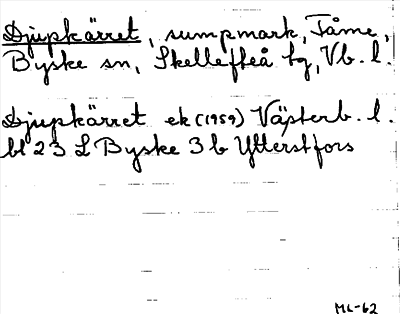 Djupkärret, sumpmark, Tåme,
Byske sn, Skellefteå tg, Vb. l.
Djupkärret ek (1959) Västerb. l.
bl 23 L Byske 3 b Ytterstfors
ML-62